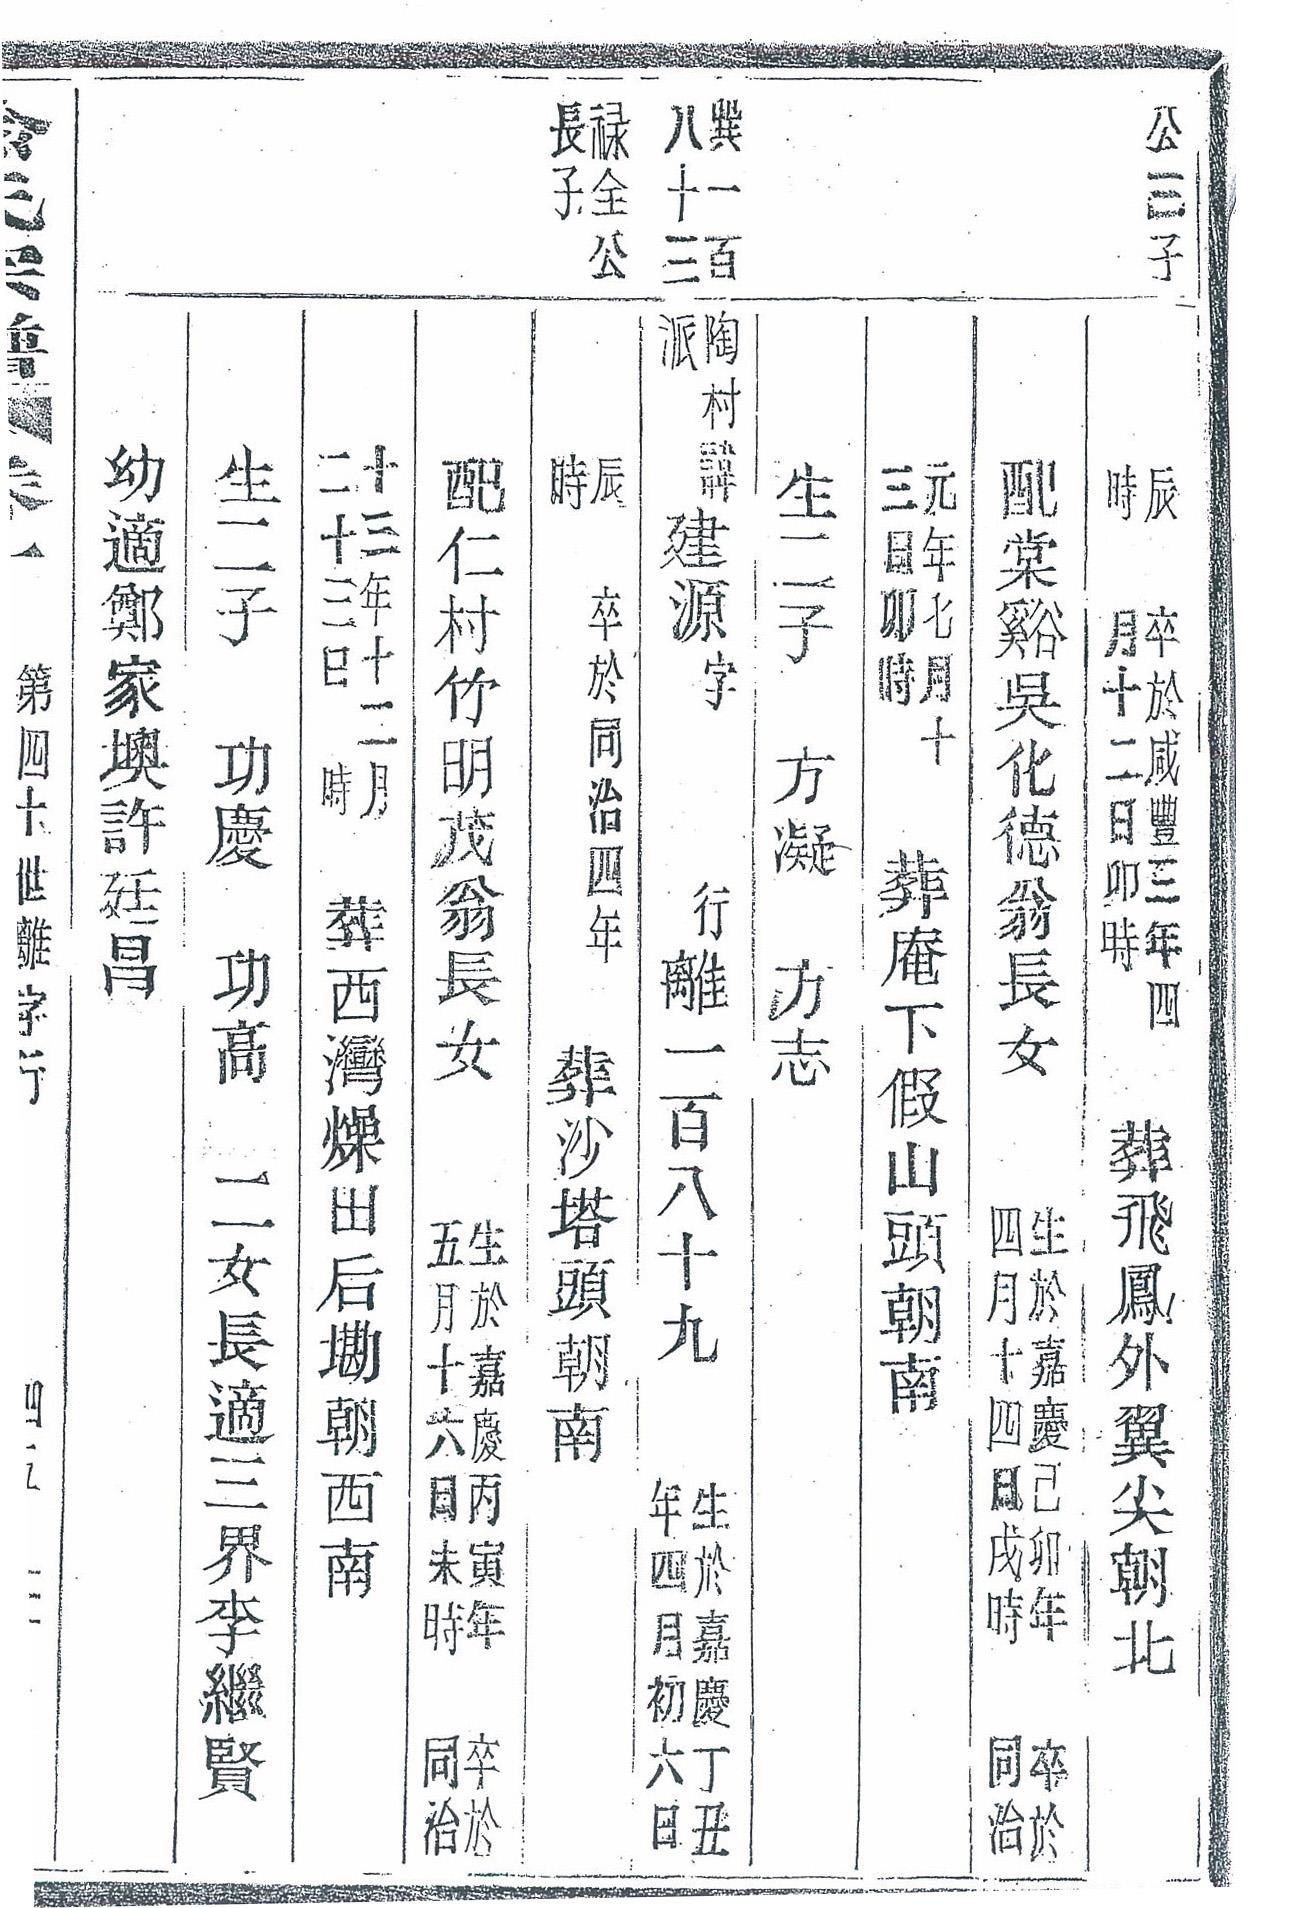 公三子
辰
時
卒於咸豐三年四
月十二日卯時
葬飛鳳外翼尖朝北
配棠谿吳化德翁長女
生於嘉慶己卯年
四月十四日戌時
卒於
同治
元年七月十
三日卯時
葬庵下假山頭朝南
生二子　方凝　方志
巽一百
八十三
陶村
派
諱建源字
行離一百八十九
生於嘉慶丁丑
年四月初六日
祿全公
長子
辰
時
卒於同治四年
葬沙塔頭朝南
配仁村竹明茂翁長女
生於嘉慶丙寅年
五月十六日未時
卒於
同治
十三年十二月
二十三日　時
葬西灣燥田后塝朝西南
生二子　功慶　功高　二女長適三界李繼賢
幼適鄭家墺許廷昌
氏宗譜
卷
第四十世離字行